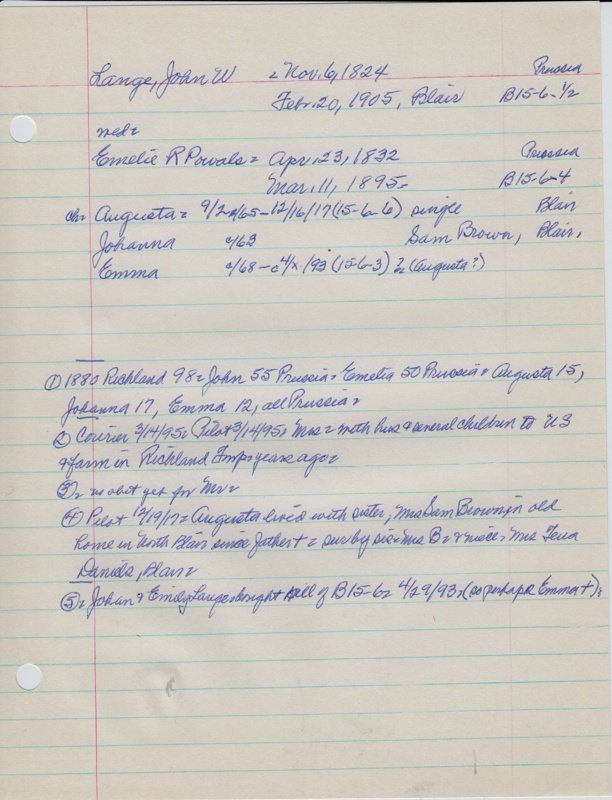 Lange, John W = Nov. 6, 1824 Prussia
Febr. 20, 1905, Blair B15-6-1/2
med=
Emelie R Powals= Apr. 23, 1832 Prussia
Mar. 11, 1895= B15-6-4
ch= Augusta= 9/24/65-12/16/17 (15-6-6) single Blair
Johanna c/63 Sam Brown, Blair,
Emma c/68 - c 4/x /93 (15-6-3) (Augusta?)
① 1880 Richland 98= John 55 Prussia= Emelia 50 Prussia= Augusta 15,
Johanna 17, Emma 12, all Prussia=
② Courier 3/14/95= (Pilot 3/14/95)= Mrs = with hus & several children to US
& farm in Richland Tmp= years ago=
③= no obit yet for Mr=
④ Pilot 12/19/17= Augusta lived with sister, Mrs Sam Brown, in old
home in North Blair since father + = sur by sis= Mrs B= & niece= Mrs
Daniels, Blair=
⑤= Johan & Emily Lange bought all of B15-6= 4/29/93= (so perhaps Emma +);